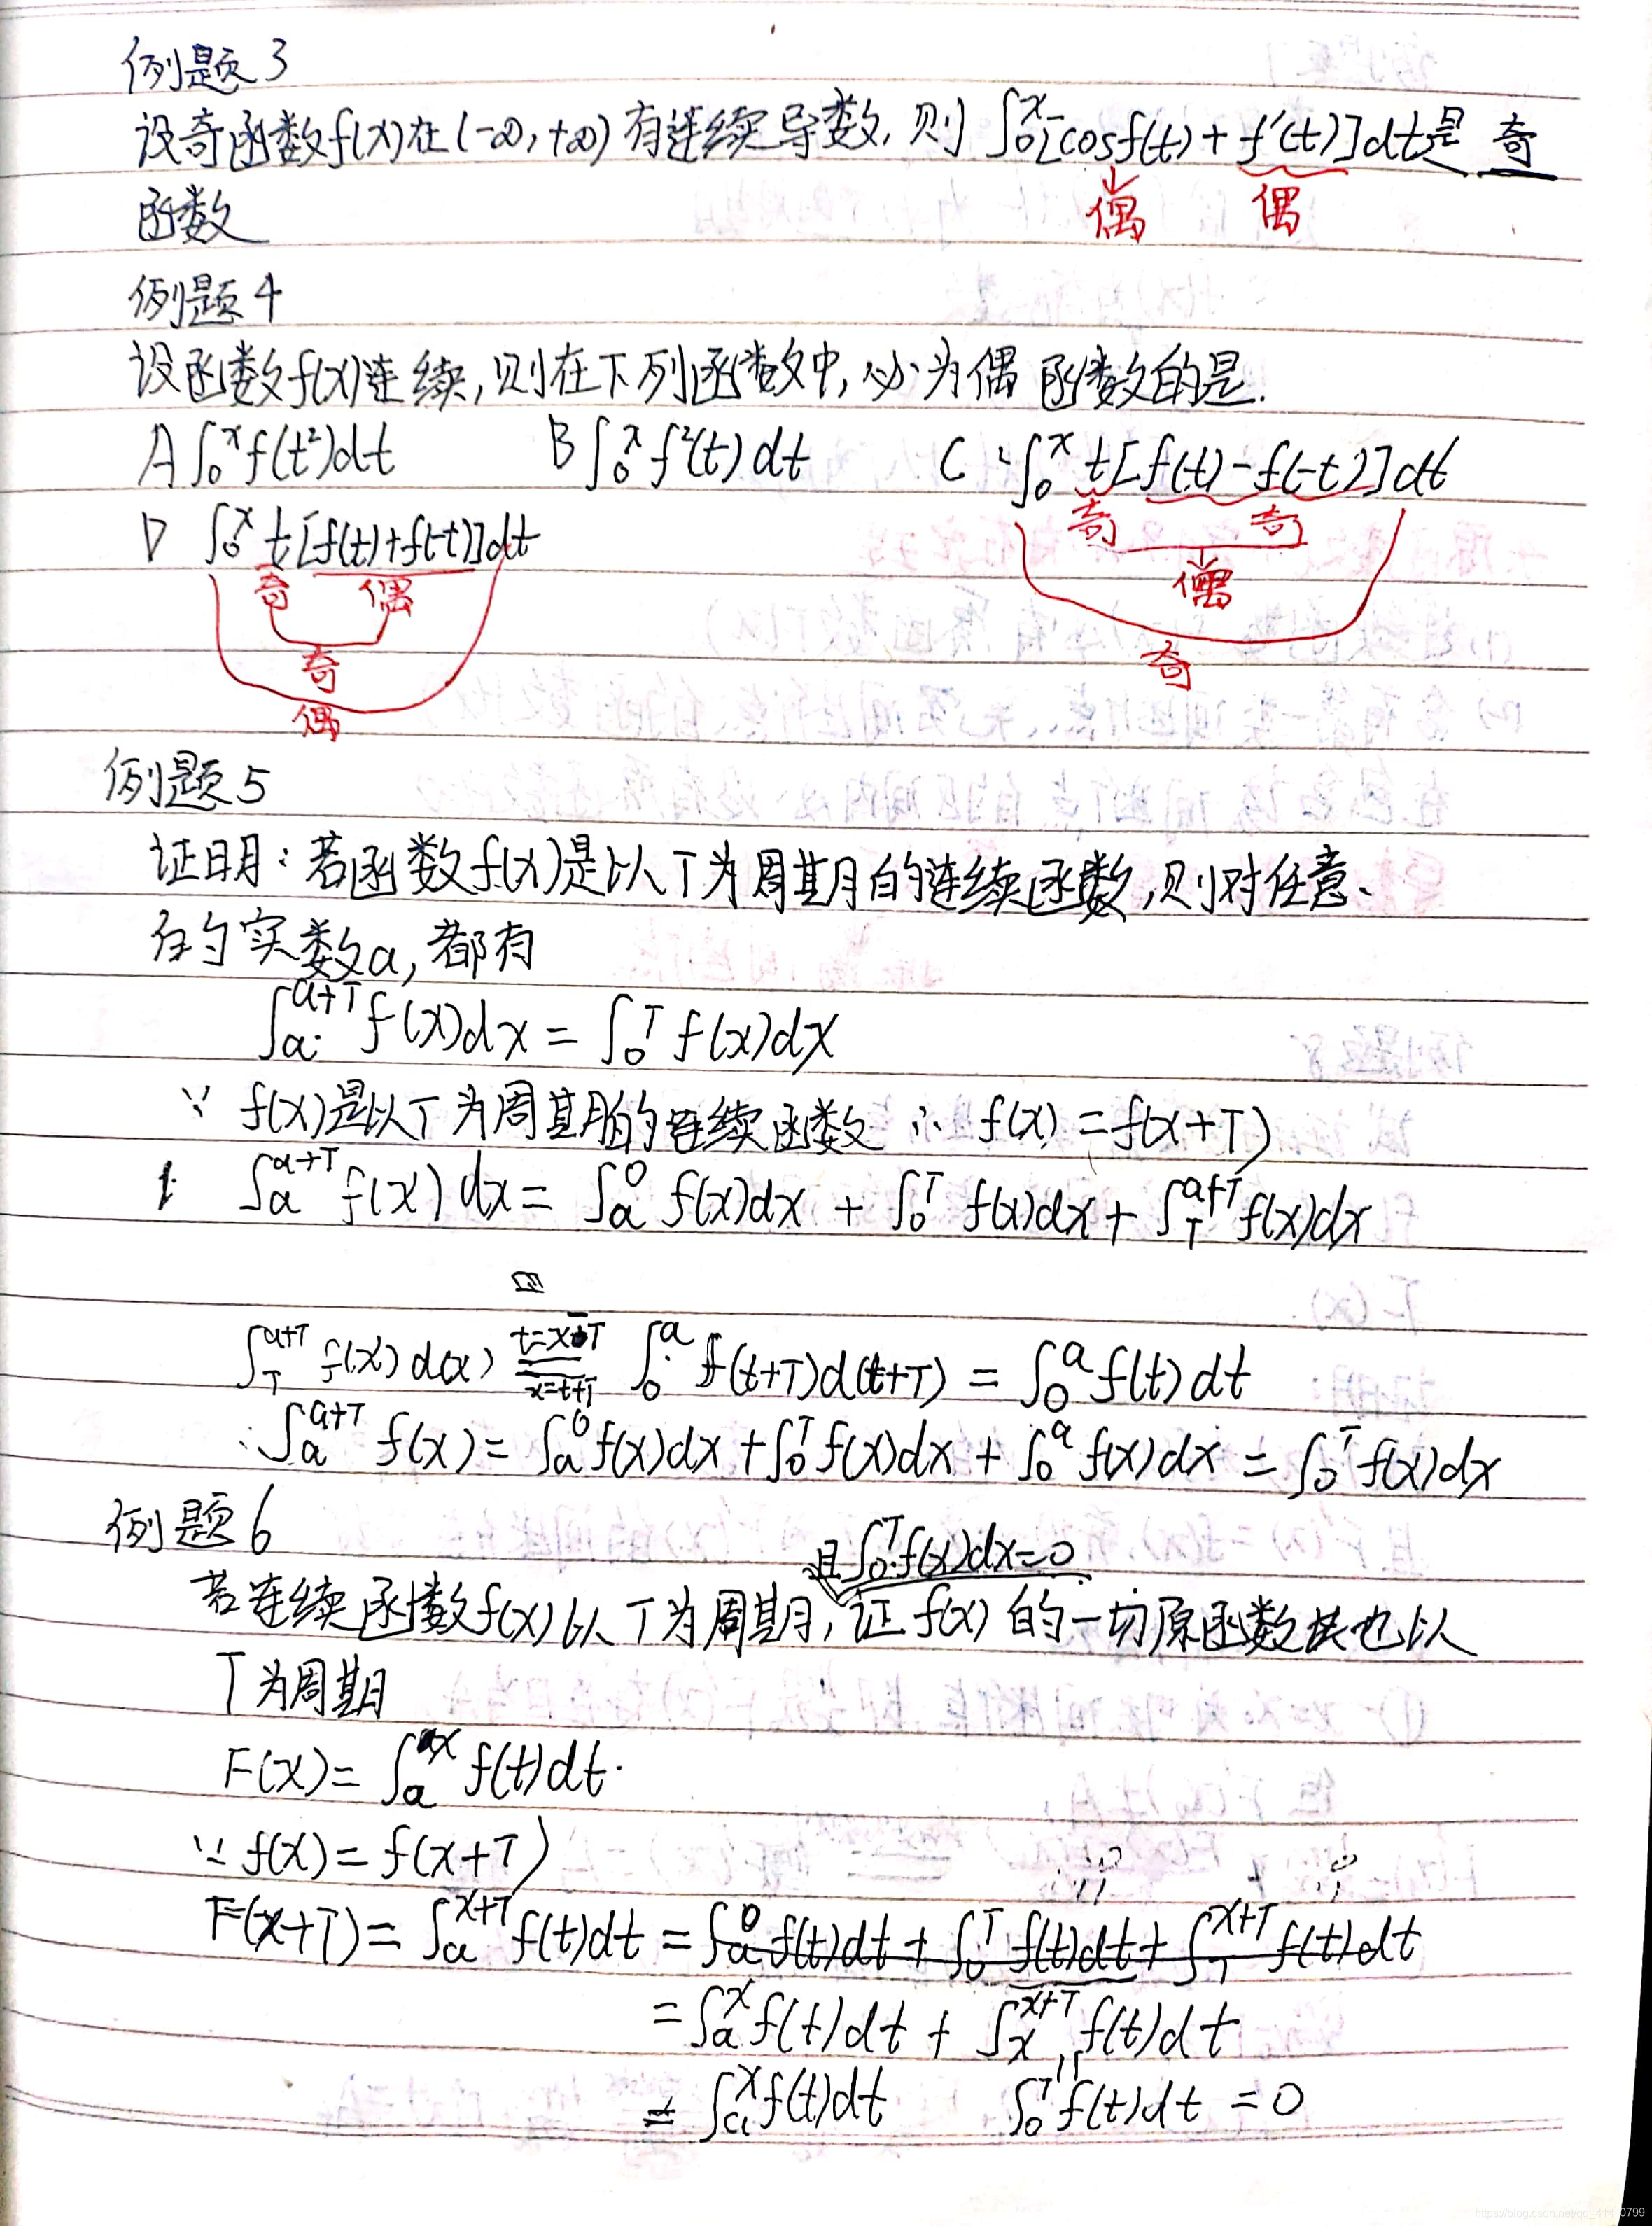 例题3
设奇函数f(x)在(-∞,+∞)有连续导数,则 ∫₀ˣ[cosf(t)+f'(t)]dt是 奇
偶 偶
函数
例题4
设函数f(x)连续,则在下列函数中,必为偶函数的是.
A ∫₀ˣ f(t²)dt B ∫₀ˣ f²(t)dt C ∫₀ˣ t[f(t)-f(-t)]dt
奇 奇
D ∫₀ˣ t[f(t)+f(-t)]dt
奇 偶 偶
奇 奇
偶
例题5
证明:若函数f(x)是以T为周期的连续函数,则对任意
的实数a,都有
∫ₐᵃ⁺ᵀ f(x)dx = ∫₀ᵀ f(x)dx
∵ f(x)是以T为周期的连续函数 ∴ f(x)=f(x+T)
∫ₐᵃ⁺ᵀ f(x)dx = ∫ₐ⁰ f(x)dx + ∫₀ᵀ f(x)dx + ∫_T^(a+T) f(x)dx
∫_T^(a+T) f(x)d(x) t=x-T x=t+T ∫₀ᵃ f(t+T)d(t+T) = ∫₀ᵃ f(t)dt
∴∫ₐᵃ⁺ᵀ f(x) = ∫ₐ⁰ f(x)dx + ∫₀ᵀ f(x)dx + ∫₀ᵃ f(x)dx = ∫₀ᵀ f(x)dx
例题6
且∫₀ᵀ f(x)dx=0
若连续函数f(x)以T为周期,证f(x)的一切原函数也以
T为周期
F(x)= ∫ₐˣ f(t)dt.
∵ f(x)= f(x+T)
F(x+T)= ∫ₐˣ⁺ᵀ f(t)dt = ∫ₐ⁰ f(t)dt + ∫₀ᵀ f(t)dt + ∫_T^(x+T) f(t)dt
= ∫ₐˣ f(t)dt + ∫ₓˣ⁺ᵀ f(t)dt
= ∫ₐˣ f(t)dt ∫₀ᵀ f(t)dt = 0